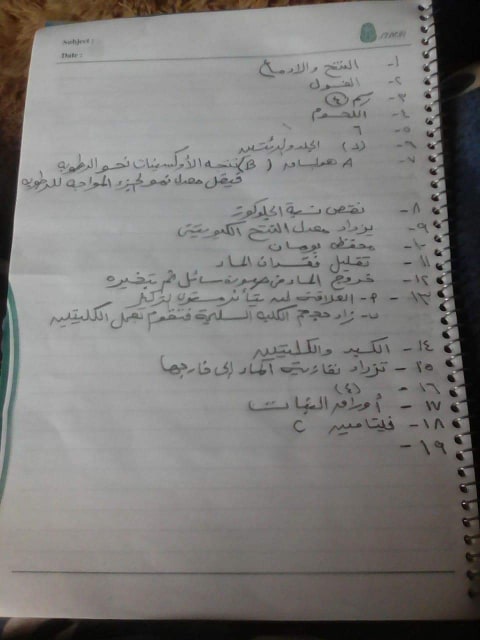 Subject :
Date :
١- الفتح والادماع
٢- الفسول
٣- رسم (٤)
٤- اللحوم
٥- ٦
٦- (د) الجلد والرئتين
٧- A هرمونات ( B ) تتجه الأوكسينات نحو الرطوبة
فيقل معدل نمو الجزء المواجه للرطوبة
٨- نقص نسبة الجلوكوز
٩- يزداد معدل النتح الكيوتينى
١٠- محفظة بومان
١١- تقليل فقدان الماء
١٢- خروج الماء فى صورة سائل ثم تبخيره
١٣- العلاقة
ب- زاد حجم الكلية السليمة فتقوم بعمل الكليتين
١٤- الكبد والكليتين
١٥- تزداد نفاذية الماء إلى خارجها
١٦- (٤)
١٧- أوراق النبات
١٨- فيتامين C
١٩-